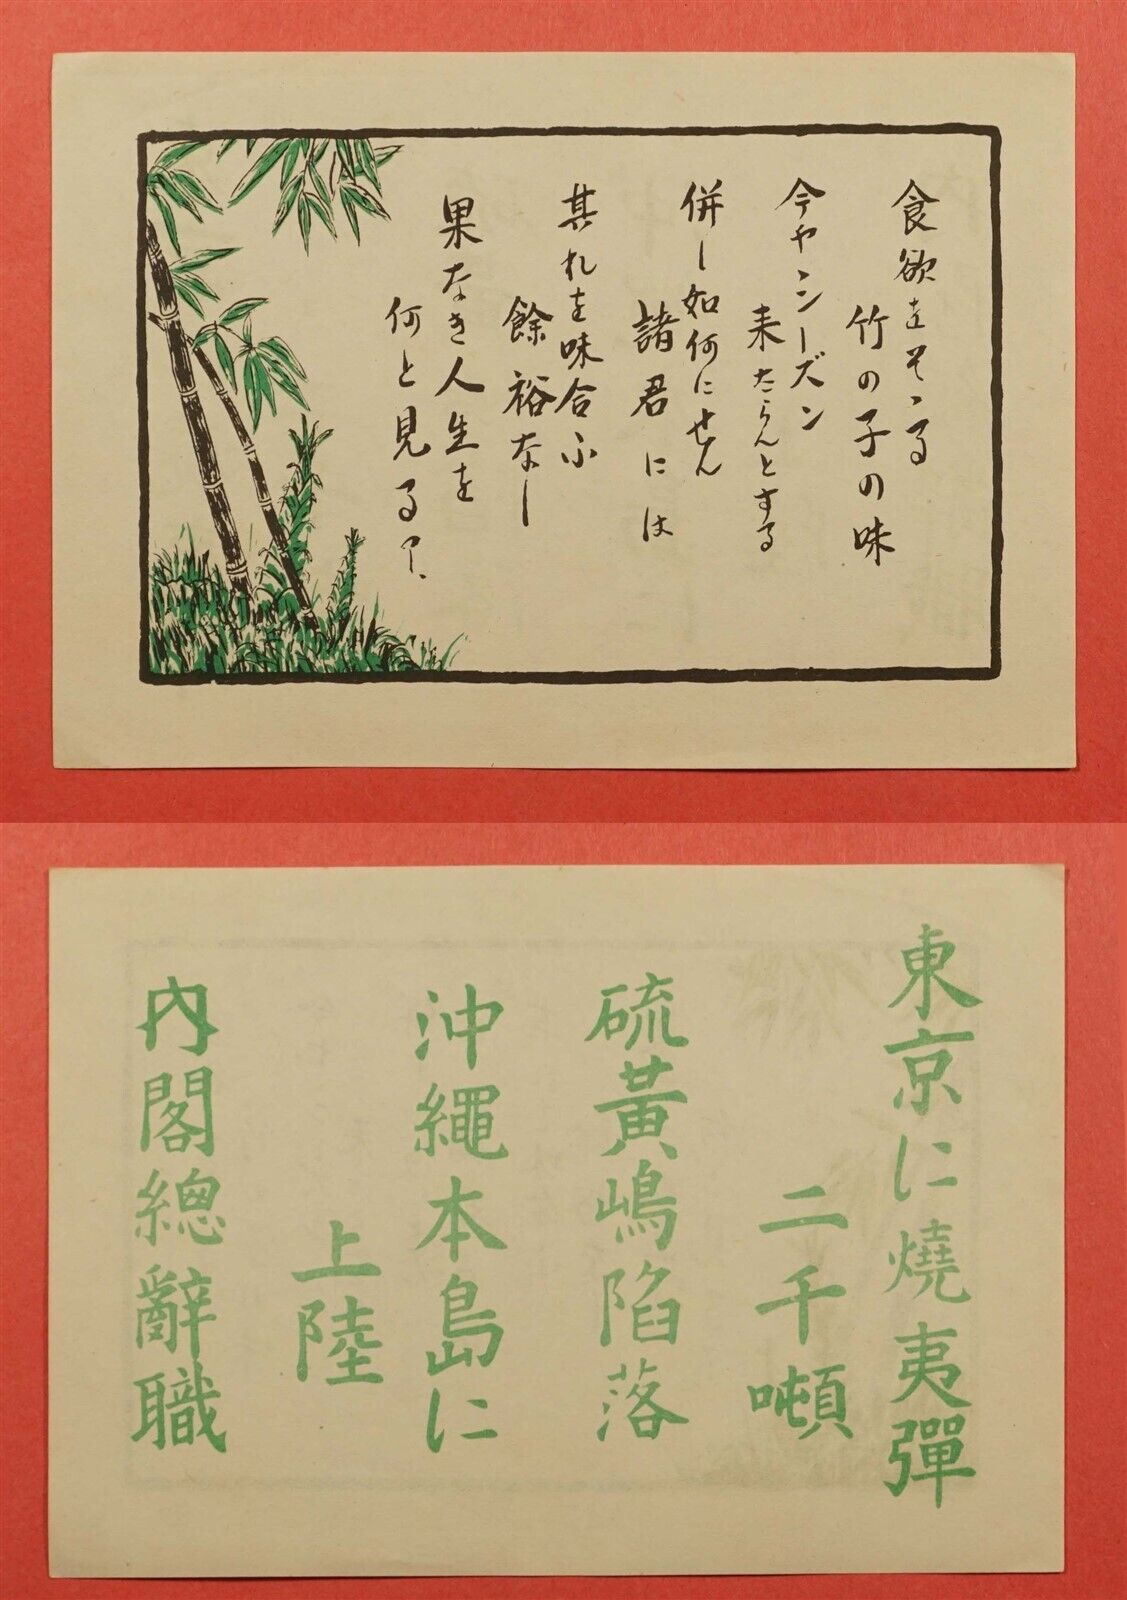 食欲をそゝる
竹の子の味
今やシーズン
来たらんとする
併し如何にせん
諸君には
其れを味合ふ
餘裕なし
果なき人生を
何と見る
東京に燒夷彈
二千噸
硫黃嶋陷落
沖繩本島に
上陸
內閣總辭職